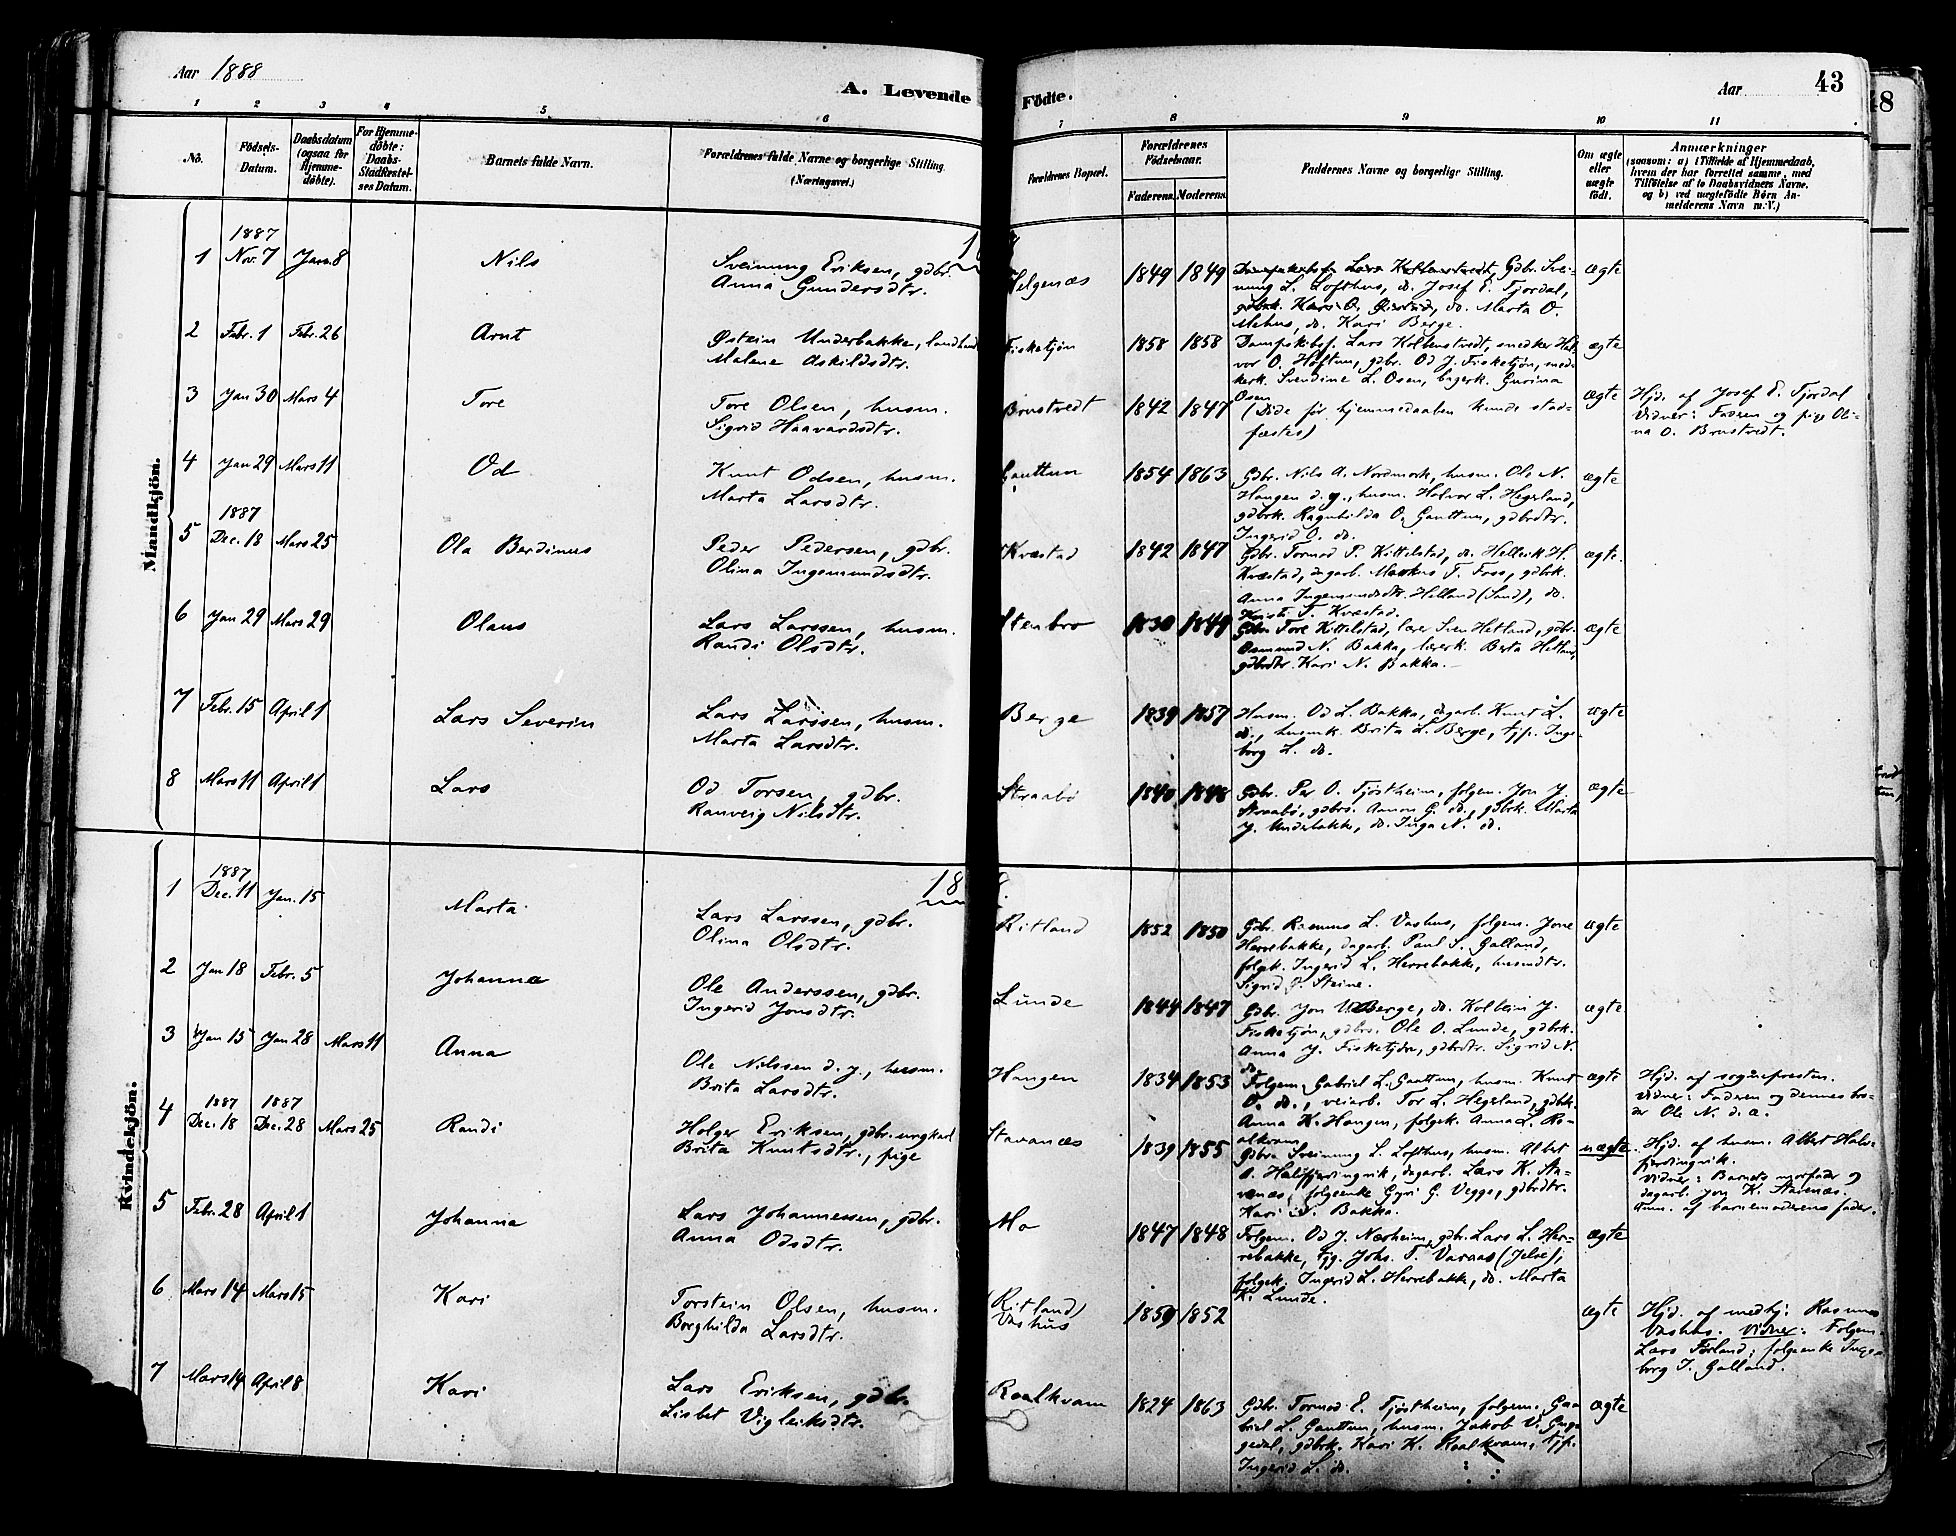 Aar 1888
A. Levende Fødte.
Aar 43
48
1 2 3 4 5 6 7 8 9 10 11
No.
Fødsels-Datum.
Daabsdatum (ogsaa for Hjemmedøbte).
For Hjemmedøbte: Daabs-Stadfæstelses Datum.
Barnets fulde Navn.
Forældrenes fulde Navne og borgerlige Stilling.
(Næringsvei.)
Forældrenes Bopæl.
Forældrenes Fødselsaar.
Faderens. Moderens.
Faddernes Navne og borgerlige Stilling.
Om ægte eller uægte født.
Anmærkninger
(saasom: a) i Tilfælde af Hjemmedaab,
hvem der har forrettet samme, med
Tilføielse af to Daabsvidners Navne,
og b) ved uægtefødte Børn An-
melderens Navn m. V.)
Mandkjøn.
1 1887 Nov. 7 Jan. 8 Nils
Sveinung Eriksen, gdbr.
Anna Gundersdtr.
Helgenæs 1849 1849
Dampskibsf. Lars Kolbenstvedt, Gdbr. Svei-
nung L. Lofthus, do. Josef E. Tjordal,
gdbrk. Kari O. do. Marta O.
Mehus, do. Kari Berge.
ægte
2 Febr. 1 Febr. 26 Arnt
Østein Underbakke, landhand
Malene Askildsdtr.
Fisketjøn 1858 1858
Dampskibsf. Lars Kolbenstvedt, snedker Hal-
vor O. Høftun, gdbr. Od J. Fisketjøn, sned-
kerk. Svendine L. Osen, bagerk. Gurina
Osen
ægte
3 Jan 30 Mars 4 Tore
Tore Olsen, husm.
Sigrid Haavardsdtr.
Brustvedt 1842 1847
(Døde før hjemmedaaben kunde stad-
fæstes)
ægte
Hjd. af Josef E. Tjordal
Vidner: Faderen og pige Oli-
na O. Brustvedt.
4 Jan 29 Mars 11 Od
Knut Odsen, husm.
Marta Larsdtr.
Gauttun 1854 1863
Gdbr. Nils A. Nordmork, husm. Ole N.
Haugen d. y., husm. Halvor L. Hegeland,
gdbrk. Ragnhilda O. Gauttun, gdbrdtr.
Ingerid O. do.
ægte
5 1887 Dec. 18 Mars 25 Ola Berdinus
Peder Pedersen, gdbr.
Olina Ingemundsdtr.
Kvæstad 1842 1847
Gdbr. Tormod P. Kittelstad, do. Helleik H.
Kvæstad, dagarb. Markus T. Foss, gdbrk.
Anna Ingemundsdtr. Helland (Sand), do.
Kristi T. Kvæstad.
ægte.
6 Jan 29 Mars 29 Olaus
Lars Larssen, husm.
Randi Olsdtr.
Stenbro 1830 1849
Gdbr. Tore Kittelstad, lærer Sven Hetland, gdbr.
Osmund N. Bakka, lærerk. Berta Hetland,
gdbrdtr. Kari N. Bakka.
ægte
7 Febr. 15 April 1 Lars Severin
Lars Larssen, husm.
Marta Larsdtr.
Berge 1839 1857
Husm. Od L. Bakka, dagarb. Knut L.
do., husmk. Brita L. Berge, tjp. Inge-
borg L. do.
ægte
8 Mars 11 April 1 Lars
Od Torsen, gdbr.
Ranveig Nilsdtr.
Straabø 1840 1848
Gdbr. Per O. Tjøstheim, folgem. Jon J.
Straabø, gdbrs. Amon G. do., gdbrk. Marta
J. Underbakke, do. Inga N. do.
ægte
Kvindekjøn.
1 1887 Dec. 11 Jan. 15 Marta
Lars Larssen, gdbr.
Olina Olsdtr.
Ritland 1852 1850
Gdbr. Rasmus L. Vashus, folgem. Jone
Herrebakke, dagarb. Paul S. Galland,
folgek. Ingerid L. Herrebakke, husmdtr.
Sigrid J. Steine.
ægte
2 Jan 18 Febr. 5 Johanna
Ole Anderssen, gdbr.
Ingerid Jonsdtr.
Lunde 1844 1847
Gdbr. Jon Berge, do. Kolbein J.
Fisketjøn, gdbrs. Ole O. Lunde, gdbrk.
Anna J. Fisketjøn, gdbrdtr. Sigrid N.
do.
ægte
3 Jan 15 Jan 28 Mars 11 Anna
Ole Nilssen d. y., husm.
Brita Larsdtr.
Haugen 1834 1853
Folgem. Gabriel L. Gauttun, husm. Knut
O. do., veiarb. Tor L. Hegeland, gdbk.
Anna K. Haugen, folgek. Anna L. Ro-
alkvam
ægte
Hjd. af sognepresten.
Vidner: Faderen og dennes bro-
der Ole N. d. æ.
4 1887 Dec. 18 1887 Dec. 28 Mars 25 Randi
Holger Eriksen, gdbr. ungkarl
Brita Knutsdtr., pige
Stavanæs 1839 1855
Gdbr. Sveinung L. Lofthus, husm. Albet
O. Halvfjerdingvik, dagarb. Lars K. Sta-
venæs, folgeenke Gyri G. Vegge, gdbrdtr.
Kari N. Bakka.
uægte.
Hjd. af husm. Albet Halv-
fjerdingvik.
Vidner: Barnets morfader og
dagarb. Jon K. Stavenæs.
Anm. af barnemoderens fader.
5 Febr. 28 April 1 Johanna
Lars Johannessen, gdbr.
Anna Odsdtr.
Mo 1847 1848
Folgem. Od J. Næsheim, gdbr. Lars L. Her-
rebakke, tjg. Johs. T. Varaas (Jelse),
folgek. Ingerid L. Herrebakke, do. Marta
K. Lunde.
ægte
6 Mars 14 Mars 15 Kari
Torstein Olsen, husm.
Borghilda Larsdtr.
(Ritland) Vashus 1859 1852
ægte
Hjd. af medhj. Rasmus
Vashus. Vidner: Folgem.
Lars Førland, folgeenke Inge-
borg I. Galland.
7 Mars 14 April 8 Kari
Lars Eriksen, gdbr.
Lisbet Vigleiksdtr.
Roalkvam 1824 1863
Gdbr. Tormod E. Tjøstheim, folgem. Ga-
briel L. Gauttun, husm. Jakob V. Guge-
gedal, gdbrk. Kari K. Roalkvam, tjp.
Ingerid L. do.
ægte